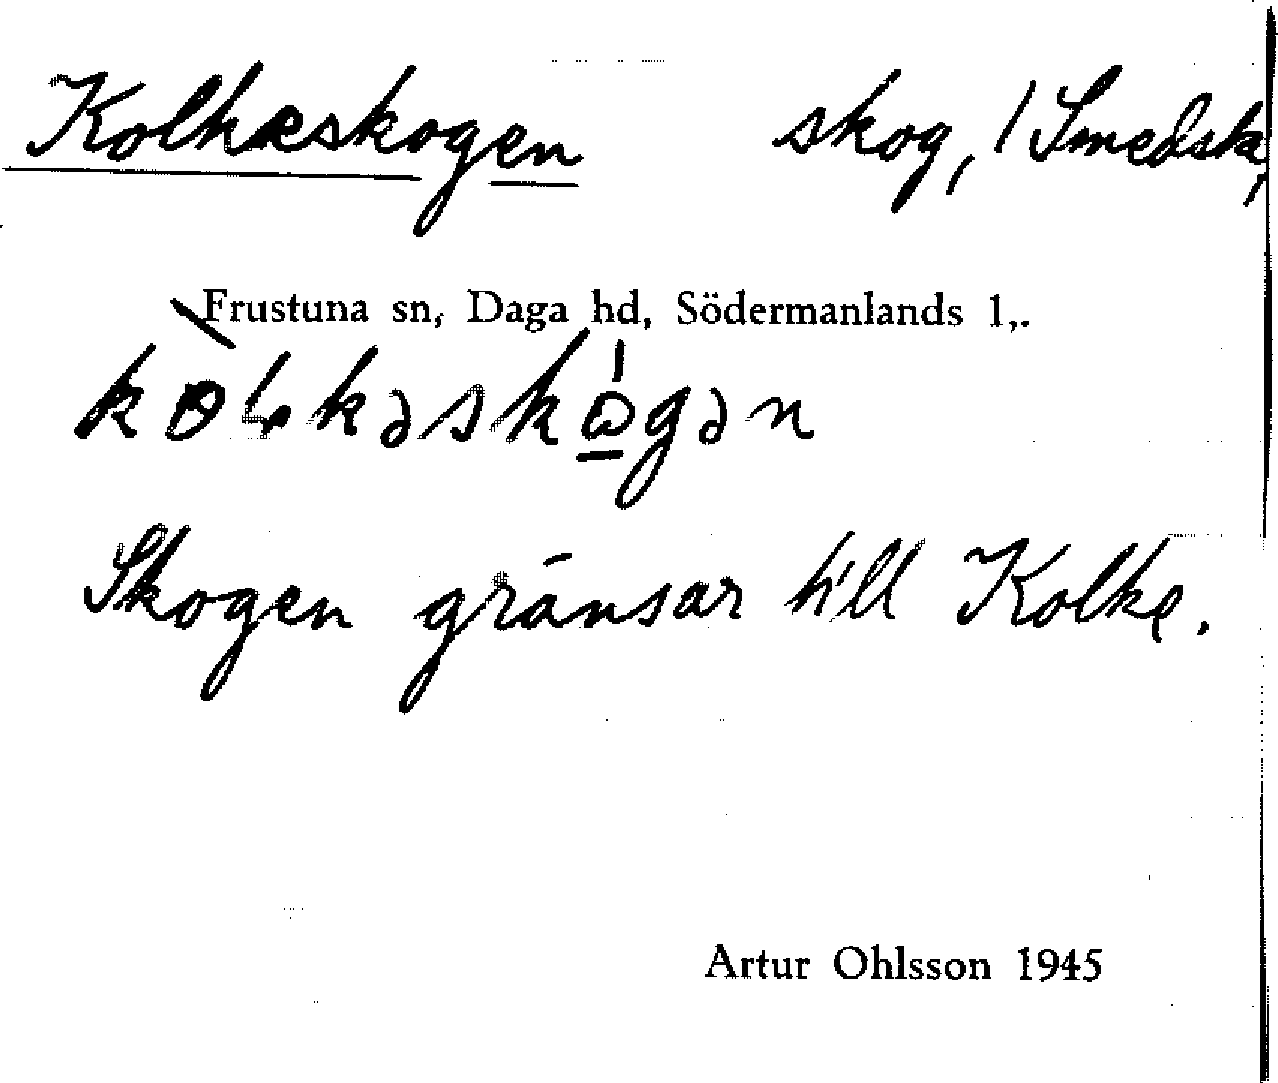 Kolkæskogen skog, / Smedsk,
Frustuna sn, Daga hd, Södermanlands l,.
Skogen gränsar till Kolke.
Artur Ohlsson 1945